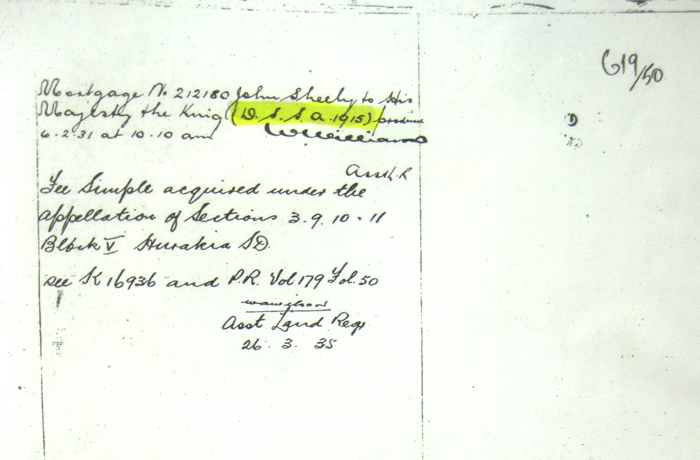 619/50
Mortgage No 212180 John Sheehy to His
Majesty the King (D.S.S.A. 1915) produced
6.2.31 at 10.10 am
Asst L R
Fee Simple acquired under the
appellation of Sections 3.9.10.11
Block V Hurakia SD.
see K16936 and P.R. Vol 179 Fol. 50
Asst Land Regr
26.3.35